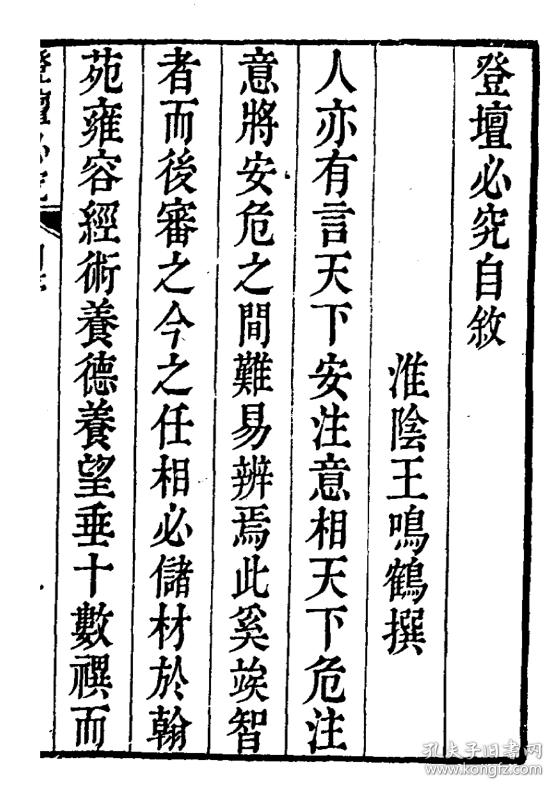 登壇必究自敘
淮陰王鳴鶴撰
人亦有言天下安注意相天下危注
意將安危之間難易辨焉此奚竢智
者而後審之今之任相必儲材於翰
苑雍容經術養德養望垂十數禩而
登壇必究
孔夫子旧书网
www.kongfz.com